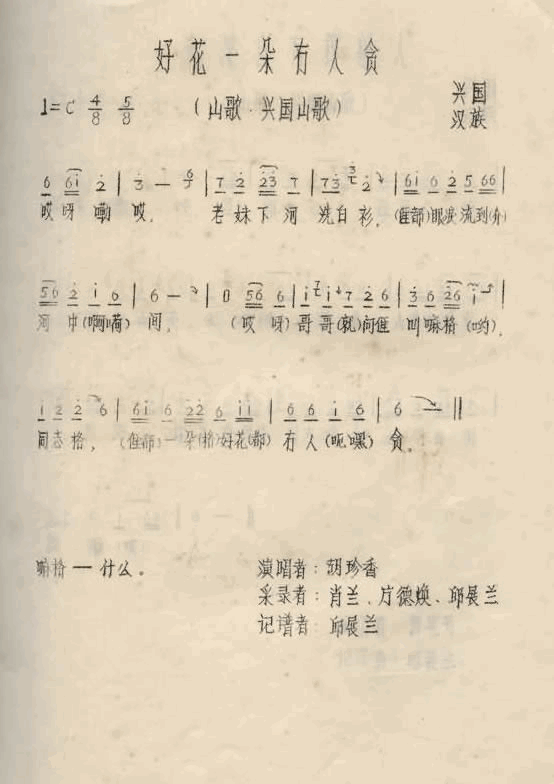 好花一朵冇人贪
1=C 4/8 5/8 （山歌·兴国山歌） 兴国
汉族
6 6i 2 | 3 — 6 | 7 2 23 7 | 73 2 | 6i 6 2 5 66 |
哎呀嘞哎， 老妹下河洗白衫，(𠊎郎)眼泪流到(介)
56 2 i 6 | 6 — | 0 56 6 | i i 7 2 6 | 3 6 26 i |
河中(啊嗬)间， (哎呀)哥哥(就)问𠊎叫嘛格(哟)，
i 2 2 6 | 6i 6 22 6 ii | 6 6 i 6 | 6 — ‖
同志格， 一朵(格)好花(都)冇人(呃嘿)贪。
嘛格——什么。 演唱者：胡珍香
采录者：肖兰、方德焕、邱展兰
记谱者：邱展兰